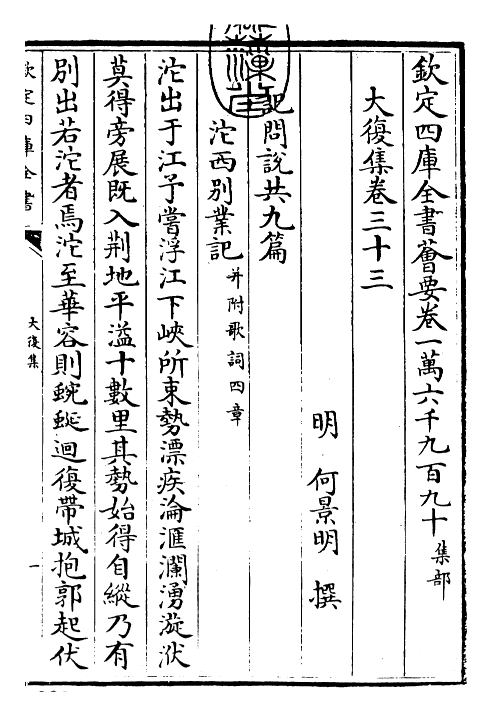 欽定四庫全書薈要卷一萬六千九百九十 集部
大復集卷三十三
明 何景明 撰
記問說共九篇
沱西別業記 并附歌詞四章
沱出于江予嘗浮江下峽所束勢漂疾淪滙瀾湧漩洑
莫得旁展既入荆地平溢十數里其勢始得自縱乃有
別出若沱者焉沱至華容則蜿蜒迴復帶城抱郭起伏
欽定四庫全書
大復集
一